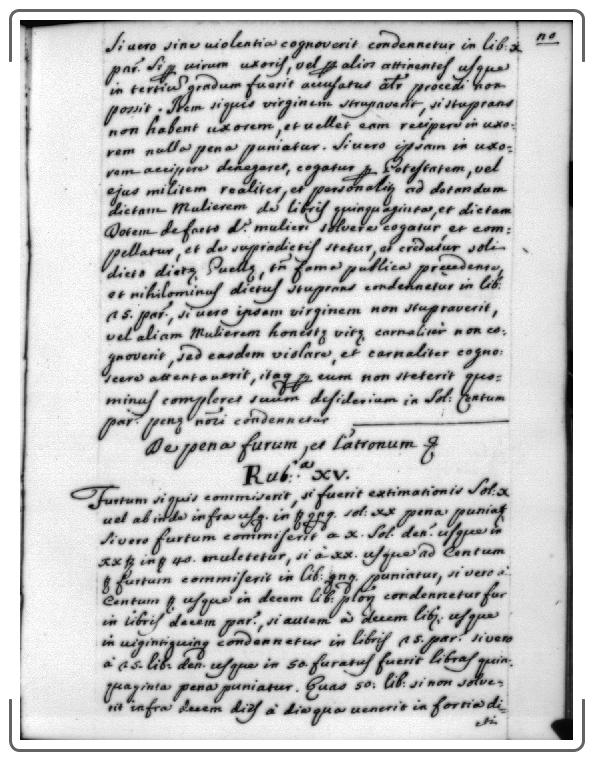 no
si vero sine violentia cognoverit condennetur in lib: x
par: si p virum uxoris, vel p alios attinentes usque
in tertiũ gradum fuerit accusatus alr procedi non
possit. Item siquis virginem strupaverit, si stuprans
non habent uxorem, et vellet eam recipere in uxo:
rem nulla pena puniatur. si vero ipsam in uxo:
rem accipere denegaret, cogatur p Potestatem, vel
ejus militem realiter, et personaliq ad dotandum
dictam Mulierem de libris quinquaginta, et dictam
Dotem de facto dᵃ mulieri solvere cogatur et com:
pellatur, et de supradictis stetur, et credatur soli
dicto dictę Puellę, tñ fama publica precedente,
et nihilominus dictus stuprans condennetur in lib:
25. par:, si vero ipsam virginem non stupraverit,
vel aliam Mulierem honestę vitę carnaliter non co:
gnoverit, sed easdem violare, et carnaliter cogno:
scere attentaverit, itaq p eum non steterit quo:
minus compleret suum desiderium in sol: Centum
par: penę nõri condennetur
De pena furum, et Latronum
Rub:ᵃ XV.
Furtum siquis commiserit, si fuerit extimationis Sol: x
vel ab inde infra usq. in sol: xx pena puniat
si vero furtum commiserit a x. sol: den: usque in
xx in 40. muletetur, si à xx. usque ad Centum
furtum commiserit in lib: qnq. puniatur, si vero à
Centum usque in decem lib: condennetur fur
in libris decem par:, si autem à decem lib: usque
in vigintiquinq condennetur in libris 25. par: si vero
à 25. lib: den: usque in 50. furatus fuerit libras quin:
quaginta pena puniatur. Quas 50: lib: si non solve:
rit infra decem dies à die qua venerit in fortia di:
cti